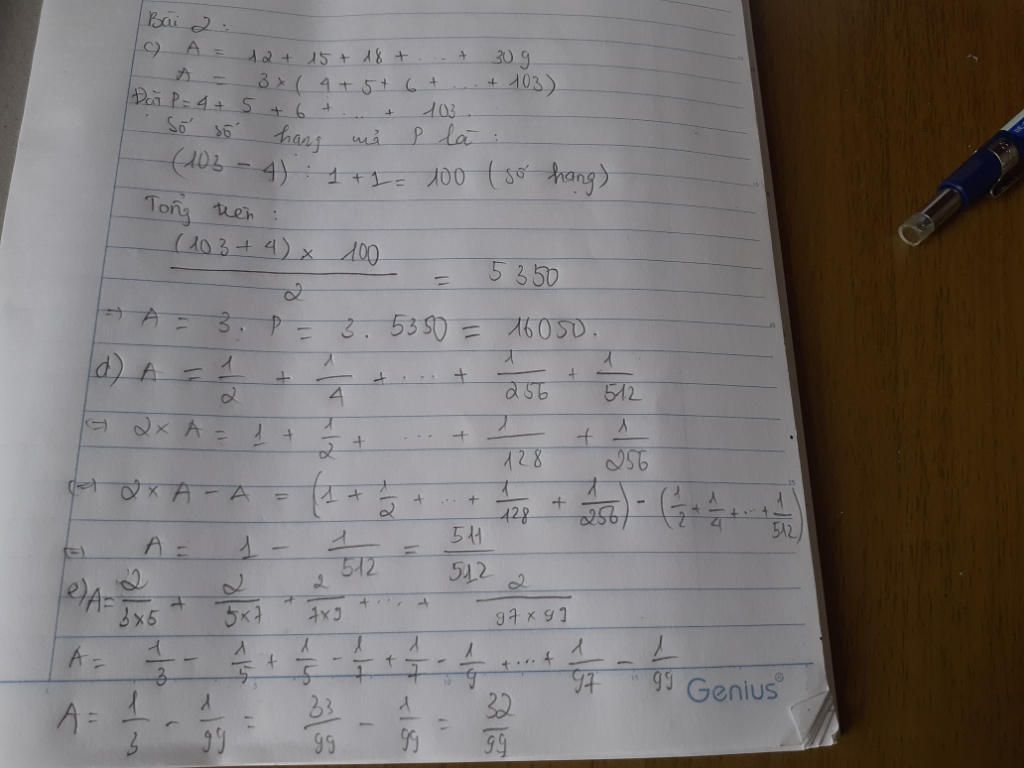 Bài 2:
c) A = 12 + 15 + 18 + ... + 309
A = 3 × ( 4 + 5 + 6 + ... + 103)
Đặt P = 4 + 5 + 6 + ... + 103.
Số số hạng của P là:
(103 - 4) : 1 + 1 = 100 (số hạng)
Tổng trên:
(103 + 4) × 100 / 2 = 5350
=> A = 3 . P = 3 . 5350 = 16050.
d) A = 1/2 + 1/4 + ... + 1/256 + 1/512
<=> 2 × A = 1 + 1/2 + ... + 1/128 + 1/256
<=> 2 × A - A = (1 + 1/2 + ... + 1/128 + 1/256) - (1/2 + 1/4 + ... + 1/512)
<=> A = 1 - 1/512 = 511/512
e) A = 2/3×5 + 2/5×7 + 2/7×9 + ... + 2/97×99
A = 1/3 - 1/5 + 1/5 - 1/7 + 1/7 - 1/9 + ... + 1/97 - 1/99
Genius®
A = 1/3 - 1/99 = 33/99 - 1/99 = 32/99